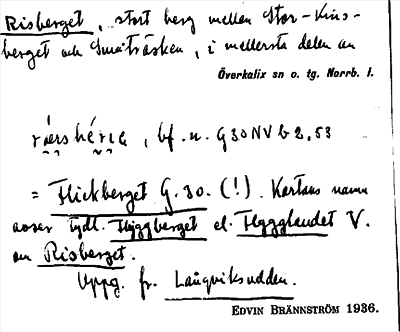 Risberget, stort berg mellan Stor-Kins-
berget och Småträsken, i mellersta delen av
Överkalix sn o. tg. Norrb. l.
bf. n. G30NV b 2,53
= Flickberget G.30. (!). Kartans namn
avser tydl. Flyggberget el. Flygglandet V.
om Risberget.
Uppg. fr. Långviksudden.
EDVIN BRÄNNSTRÖM 1936.